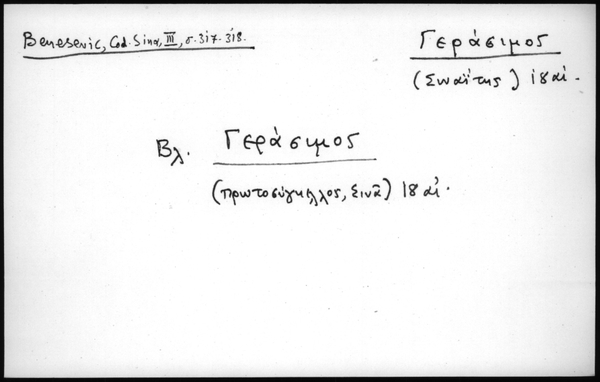 Benesevic, Cod. Sina, III, σ. 317-318.
Γεράσιμος
(Σιναΐτης) 18 αἰ.
Βλ. Γεράσιμος
(πρωτοσύγκελλος, Σινᾶ) 18 αἰ.